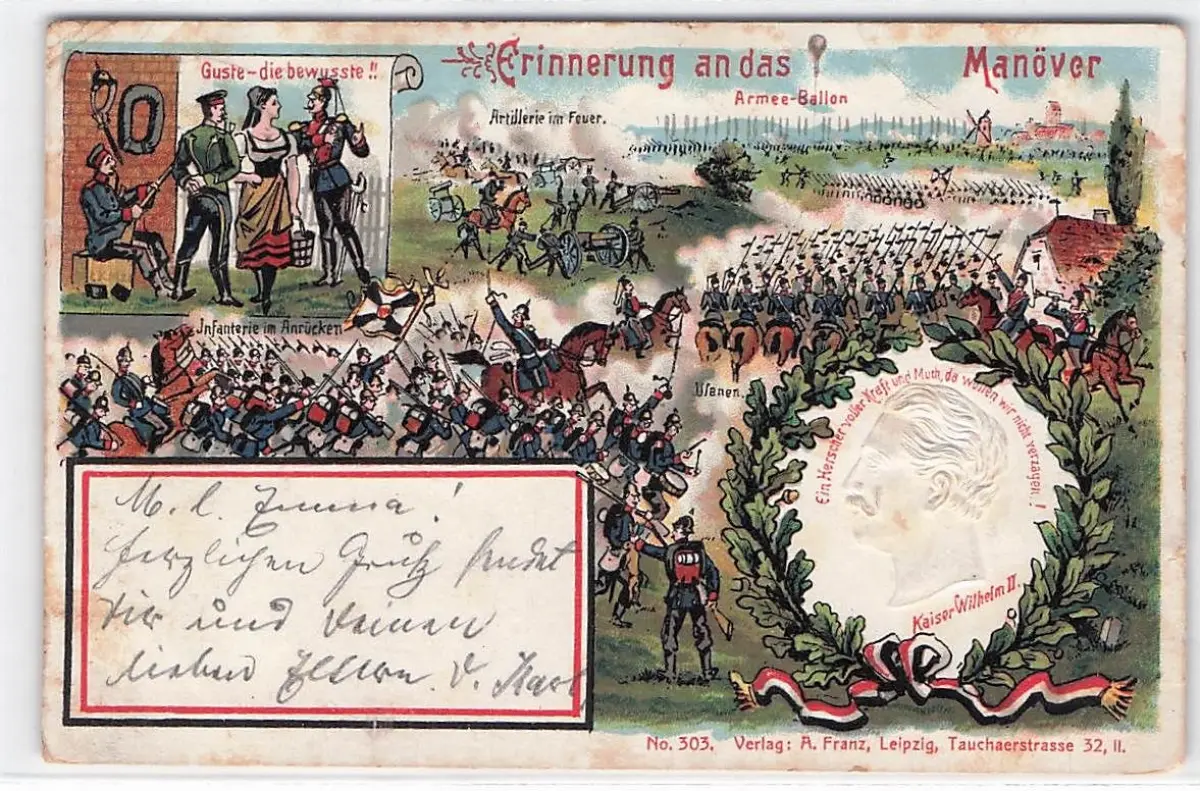 Erinnerung an das Manöver
Guste - die bewusste !!
Armee-Ballon
Artillerie im Feuer.
Infanterie im Anrücken
Ulanen.
Ein Herscher voller Kraft und Muth, da wollen wir nicht verzagen !
Kaiser Wilhelm II.
M. l. Emma!
herzlichen Gruß sendet
Dir und Deinen
lieben Eltern. D. Karl
No. 303. Verlag: A. Franz, Leipzig, Tauchaerstrasse 32, II.